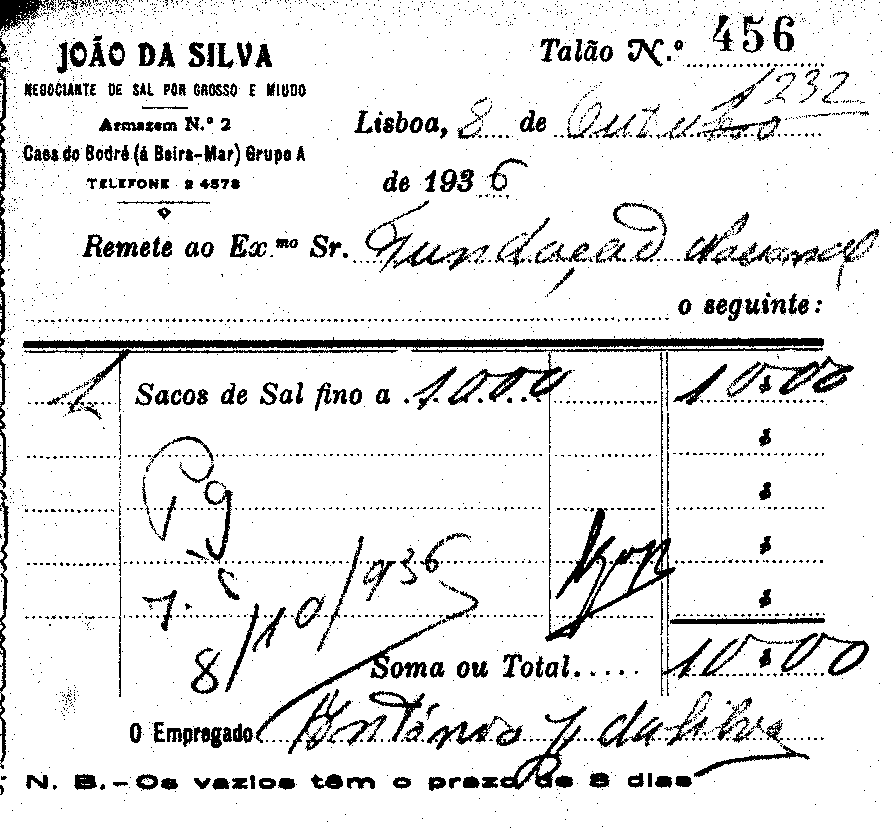 JOÃO DA SILVA
NEGOCIANTE DE SAL POR GROSSO E MIUDO
Armazem N.º 2
Caes do Sodré (á Beira-Mar) Grupo A
TELEFONE 2 4578
Talão N.º 456
1232
Lisboa, 8 de Outubro
de 1936
Remete ao Ex.mo Sr. Fundação Nacional
o seguinte:
1 Sacos de Sal fino a 10.00 10$00
$
Pg $
$
8/10/936 $
Soma ou Total..... 10$00
O Empregado António J. da Silva
N. B.-Os vazios têm o prazo de 8 dias